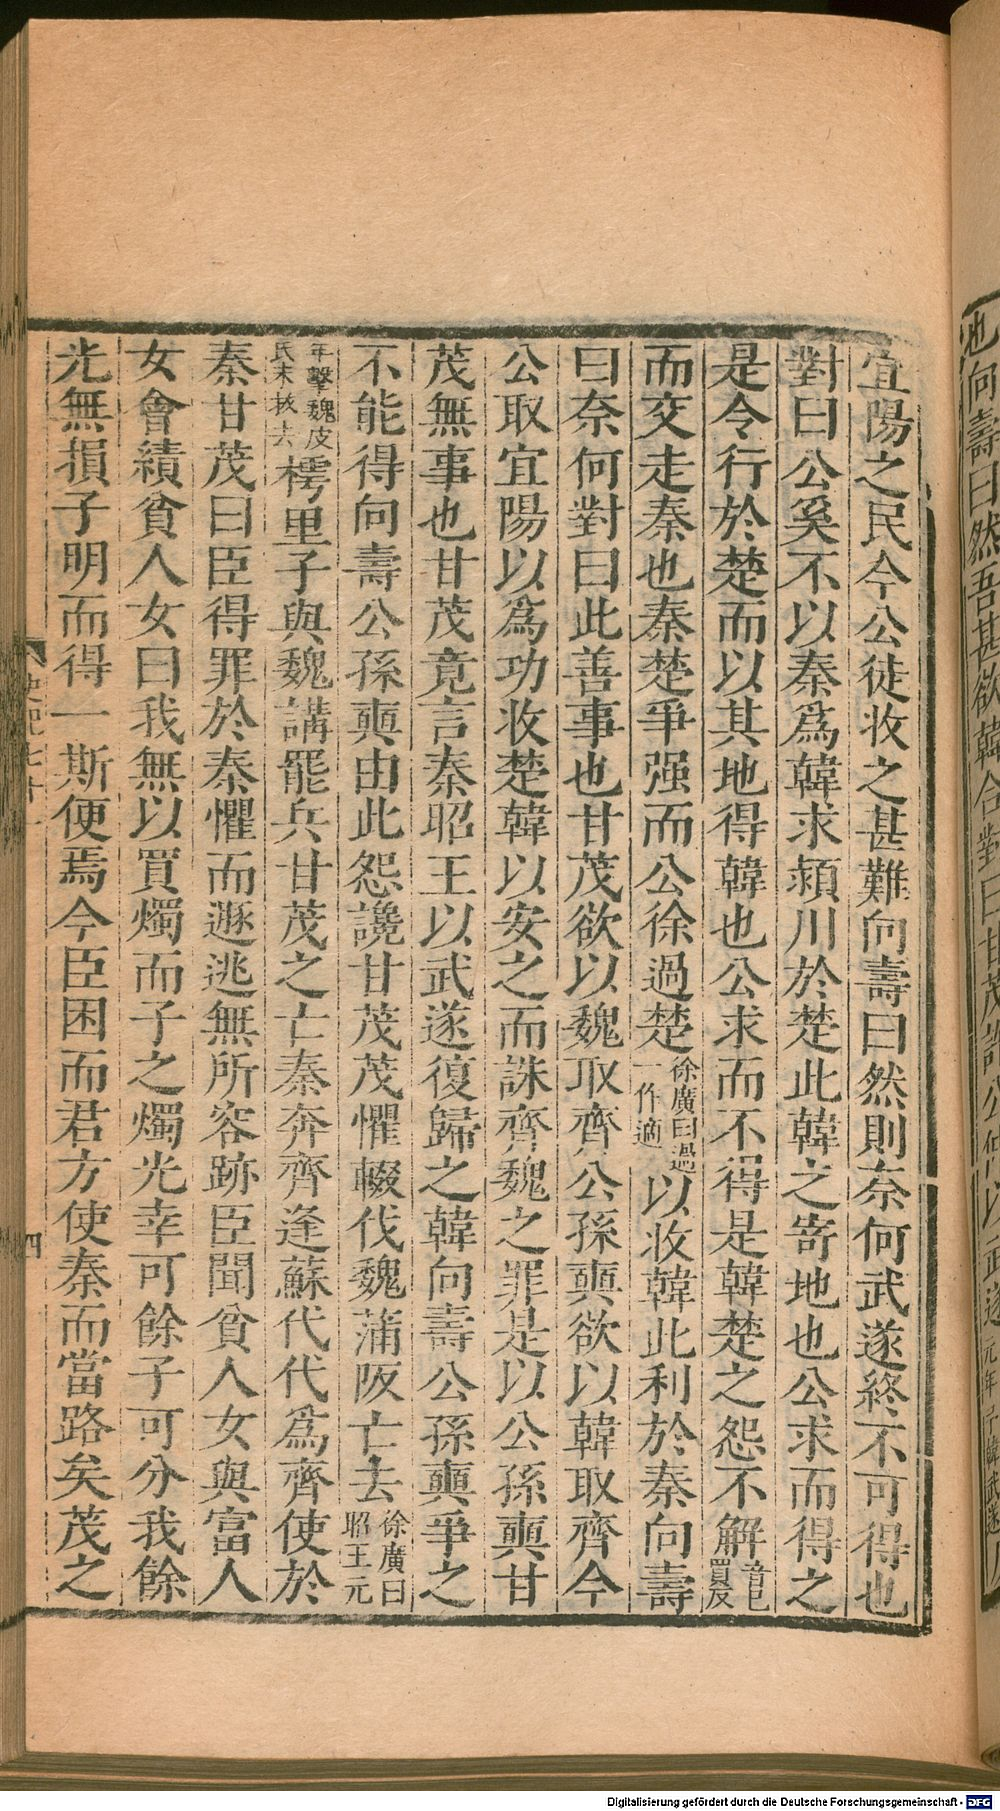 也向壽曰然吾甚欲韓合對曰甘茂許公仲以武遂元年予韓武遂
宜陽之民今公徒收之甚難向壽曰然則奈何武遂終不可得也
對曰公奚不以秦爲韓求潁川於楚此韓之寄地也公求而得之
是令行於楚而以其地得韓也公求而不得是韓楚之怨不解音已買反
而交走秦也秦楚爭强而公徐過楚徐廣曰過一作適以收韓此利於秦向壽
曰奈何對曰此善事也甘茂欲以魏取齊公孫奭欲以韓取齊今
公取宜陽以爲功收楚韓以安之而誅齊魏之罪是以公孫奭甘
茂無事也甘茂竟言秦昭王以武遂復歸之韓向壽公孫奭爭之
不能得向壽公孫奭由此怨讒甘茂茂懼輟伐魏蒲阪亡去徐廣曰昭王元
年擊魏皮氏未拔去樗里子與魏講罷兵甘茂之亡秦奔齊逢蘇代代爲齊使於
秦甘茂曰臣得罪於秦懼而遯逃無所容跡臣聞貧人女與富人
女會績貧人女曰我無以買燭而子之燭光幸可餘子可分我餘
光無損子明而得一斯便焉今臣困而君方使秦而當路矣茂之
史記七十一
四
Digitalisierung gefördert durch die Deutsche Forschungsgemeinschaft - DFG